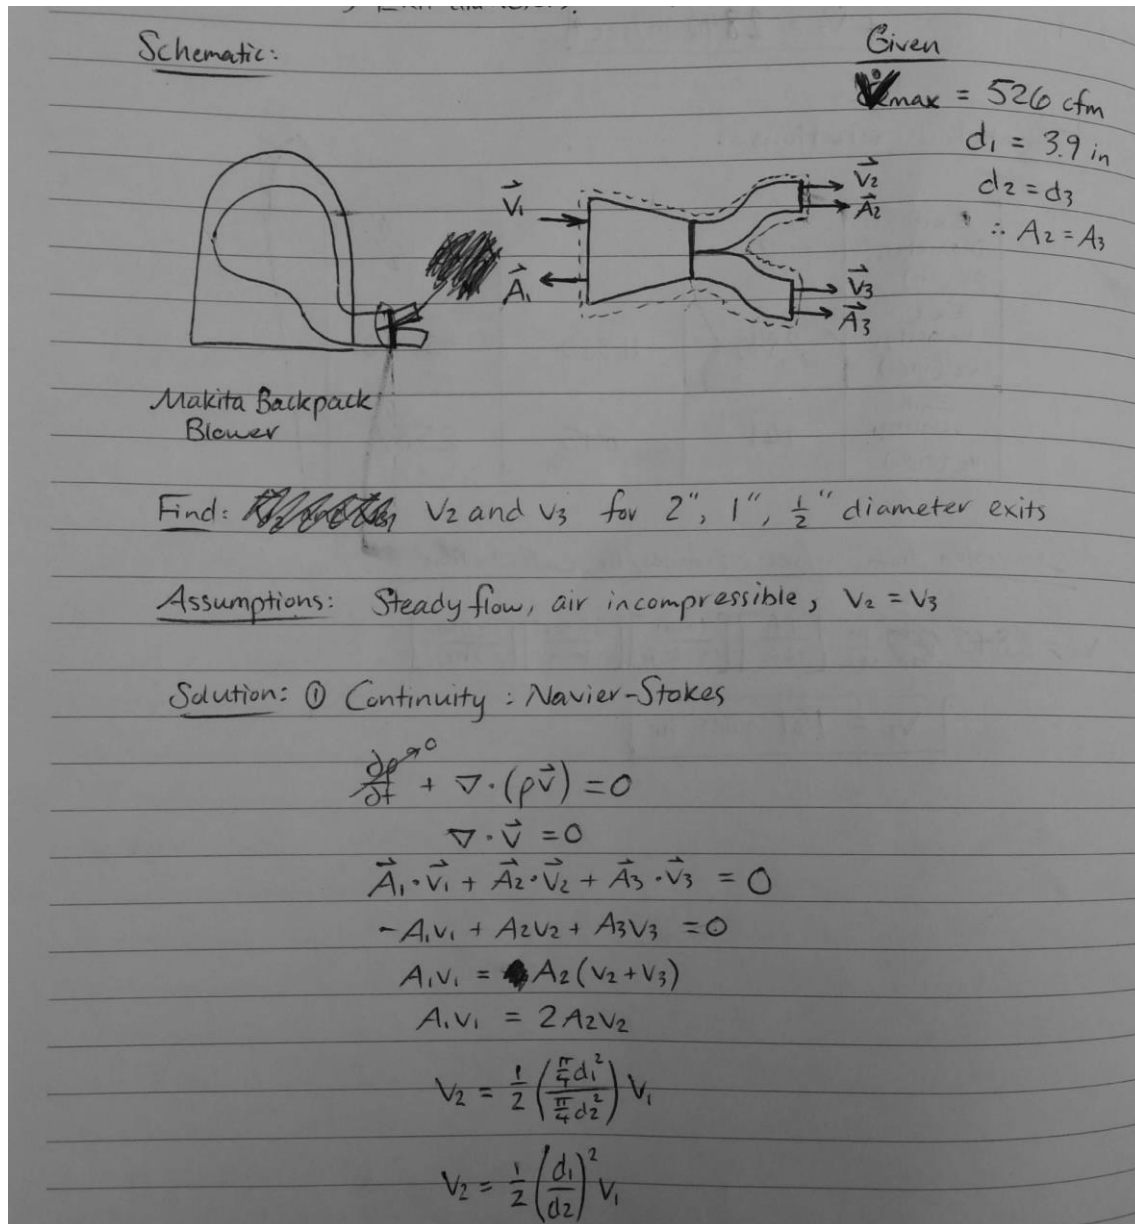 Schematic:
Given
V̇max = 526 cfm
d₁ = 3.9 in
d₂ = d₃
∴ A₂ = A₃
V⃗₁
A⃗₁
V⃗₂
A⃗₂
V⃗₃
A⃗₃
Makita Backpack
Blower
Find: V₂ and V₃ for 2", 1", ½" diameter exits
Assumptions: Steady flow, air incompressible, V₂ = V₃
Solution: ① Continuity : Navier-Stokes
∂ρ/∂t → 0 + ∇·(ρv⃗) = 0
∇·V⃗ = 0
A⃗₁·V⃗₁ + A⃗₂·V⃗₂ + A⃗₃·V⃗₃ = 0
-A₁V₁ + A₂V₂ + A₃V₃ = 0
A₁V₁ = A₂(V₂+V₃)
A₁V₁ = 2A₂V₂
V₂ = ½ (π/4 d₁² / π/4 d₂²) V₁
V₂ = ½ (d₁/d₂)² V₁